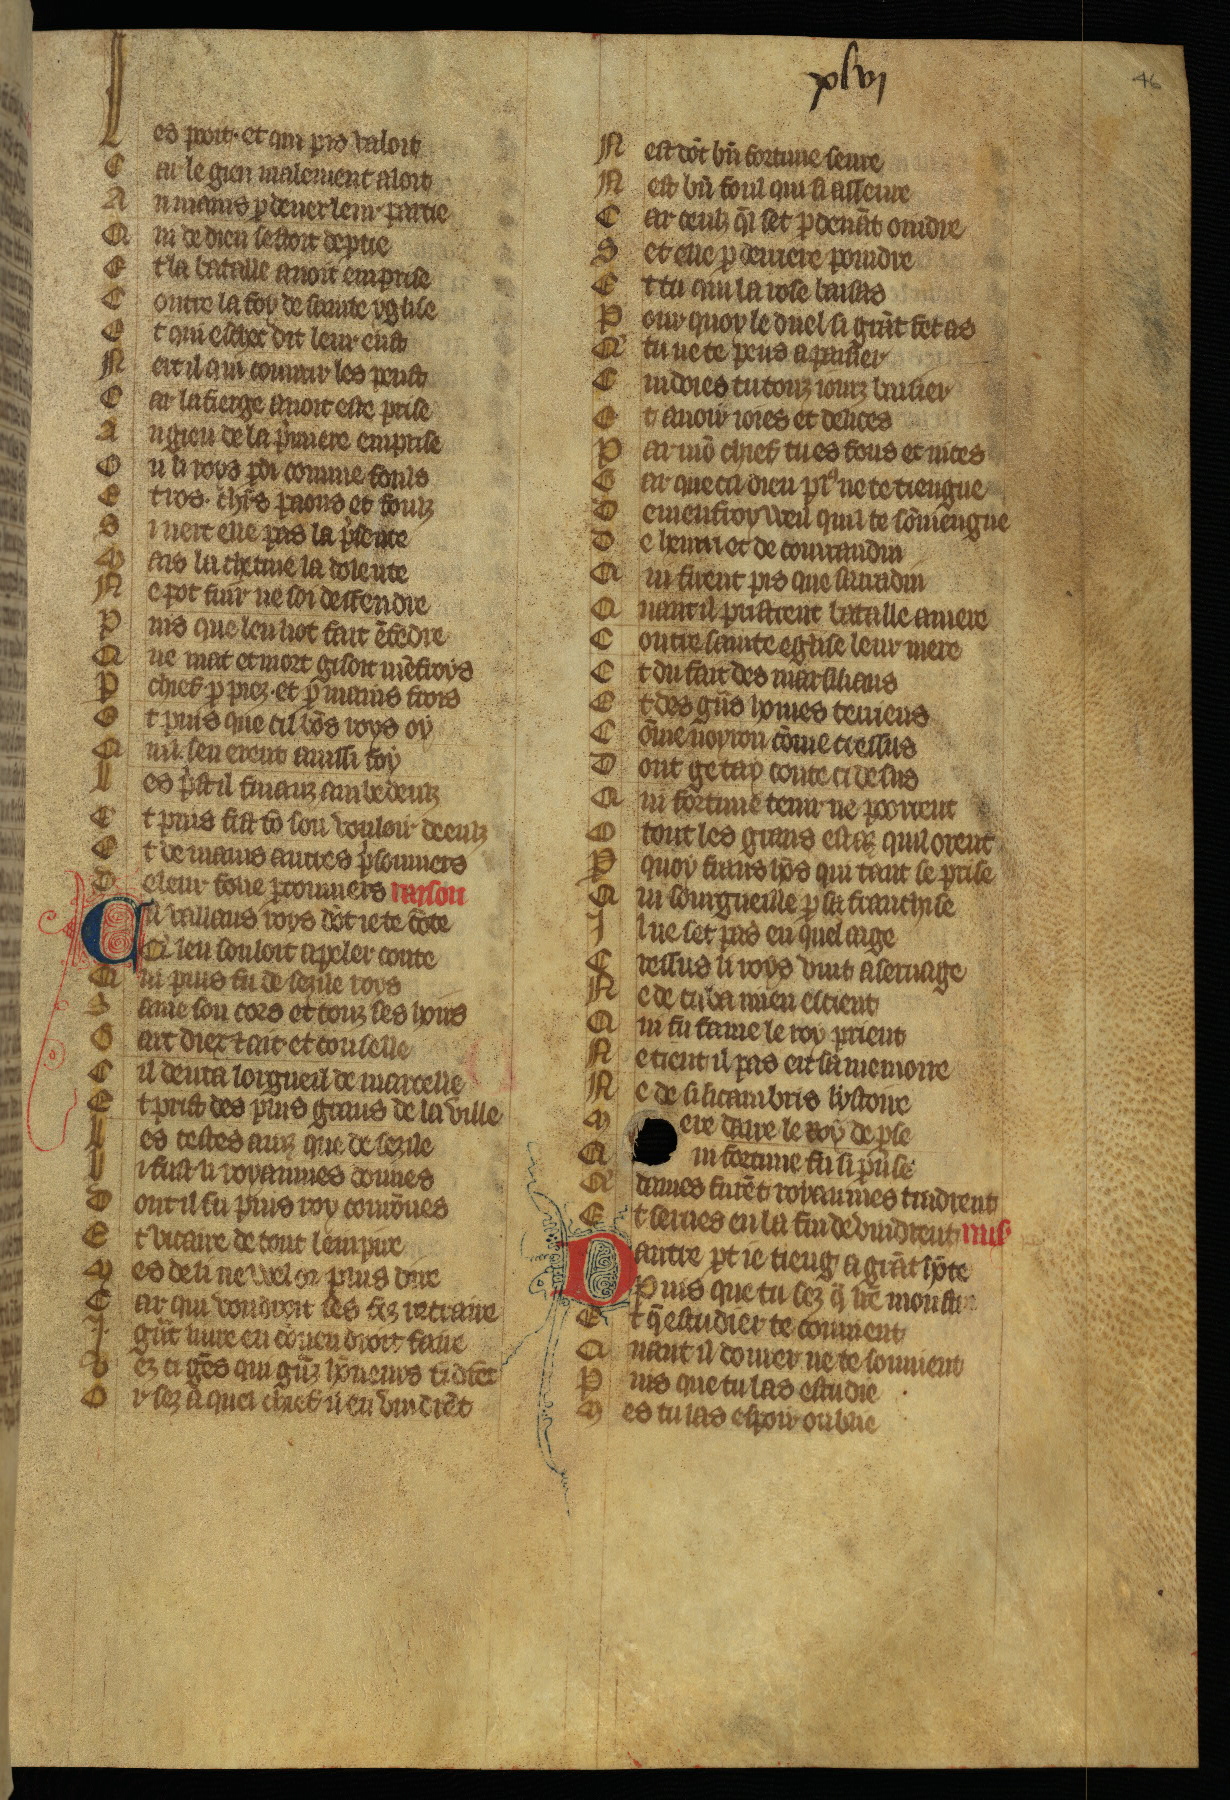 xlvi
46
Les poit· et qui pis valoit
Car le gieu malement aloit
An mains pdeuer leur partie
Qui de dieu sestoit deptie
Et la bataille auoit emprise
Contre la foy de sainte yglise
Et qui eschec dit leur eust
Neit il qui couurir les peust
Car la fierge auoit este prise
Au gieu de la pmiere emprise
Ou li roys pdi comme fouls
Et ros· chls paons et foulz
Si nert elle pas la psente
Mas la chetiue la dolente
Ne pot fuir ne soi deffendre
Puis que leu lot fait ētēdre
Que mat et mort gisoit mēfroys
P chief p piez· et p mains frois
Et puis que cil bōs roys oy
Qui· sen erent ainssi foy
Les pst il fuianz ambedeuz
Et puis fist tō son vouloir deeulz
Et de mains autres psonniers
De leur folie parconniers raison
Cil vaillans roys dōt ie te cōte
Qe leu souloit apeler conte
Qui puis fu de sezile roys
Same son cors et touz ses hoirs
Gart diex tart et conseille
Cil denta lorgueil de marceille
Et prist des plus grans de la ville
Les testes ainz que de sezile
Li fust li royaumes donnes
Dont il fu puis roy coronnes
Et vicaire de tout lempire
Mes de li ne wel or plus dire
Car qui voudroit ses fez retraire
I grāt liure en couendroit faire
Vez ci gēs qui grāz hōneurs tidrēt
Or sez a quel chief il en vindrēt
Nest dōt bn fortune seure
Nest bn foul qui si asseure
Car ceulz qi set p deuāt oindre
Set elle p derriere poindre
Et tu qui la rose baisas
Pour quoy le duel si grāt fet as
Q tu ne te peus apaisier
Cuidoies tu touz iourz baisier
Et auoir ioies et delices
Par mō chief tu es fous et nices
Gar que ci dieu pl ne te tiengue
De menfroy weil quil te souiengue
De henri et de courradin
Qui firent pis que sarradin
Quant il pristrent bataille amere
Contre sainte eglise leur mere
Et du fait des marsiliens
Et des grās homes enciens
Cōme noyron cōme cressus
Dont ge tay conte ci desus
Qui fortune tenir ne porrent
O tout les grans estaz quil orent
P quoy frans hōs qui tant se prise
Qui sorgueille p sa franchise
Il ne set pas en quel aage
Cressus li roys vint a seruage
Ne de cuba mien escient
Qui fu fame le roy prient
Ne tient il pas en sa memoire
Ne de sisicambris lystoire
Mere daire le roy de pse
Qui fortune fu si puse
Q dames furēt royaumes tindrent
Et serues en la fin deuindrent rais
Dautre pt ie tieng a grāt hōte
Puis que tu sez q lre monste
Et q estudier te conuient
Quant il domer ne te souuient
Puis que tu las estudie
Mes tu las espoir oublie